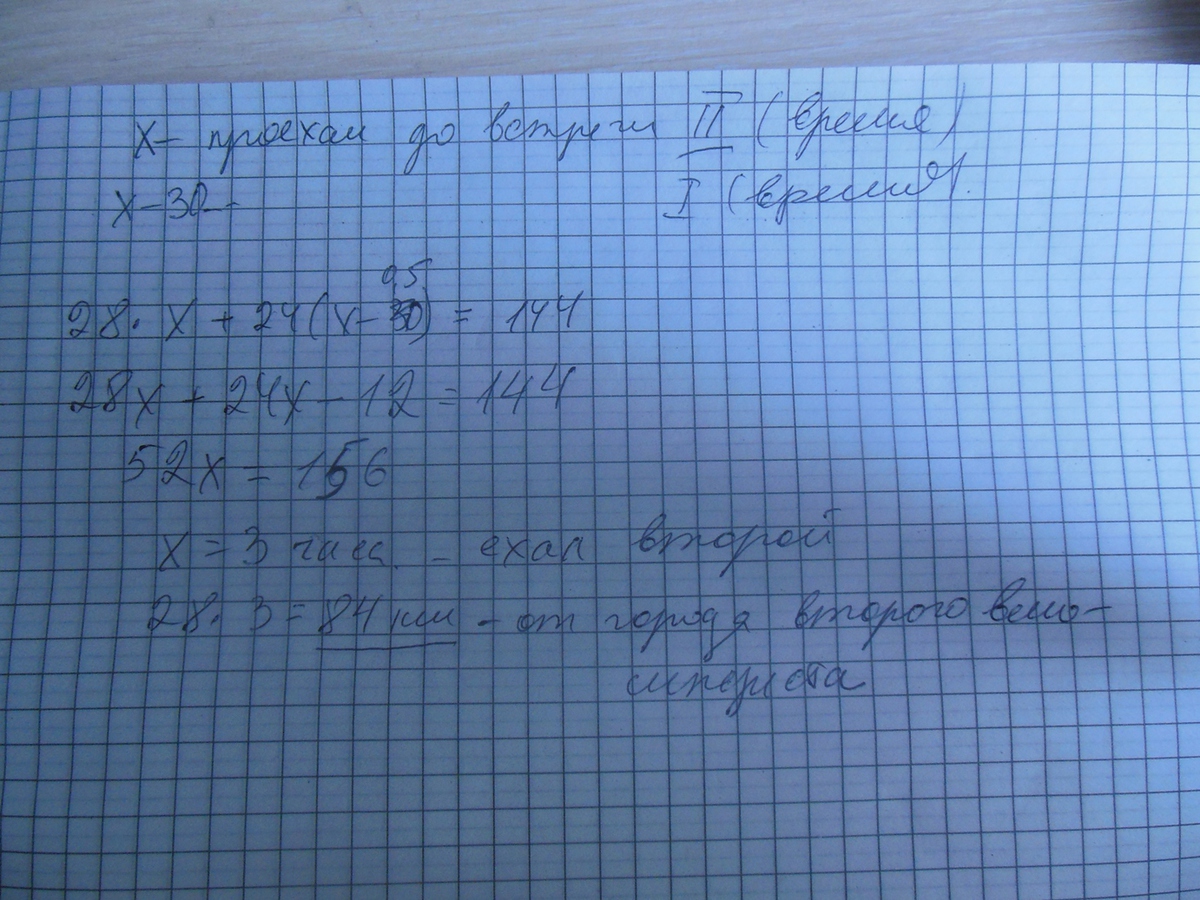 x – проехал до встречи II (время)
x – 30 – I (время).
0,5
28 · x + 24(x – 30) = 144
28x + 24x – 12 = 144
52x = 156
x = 3 часа – ехал второй
28 · 3 = 84 км – от города второго вело-
сипедиста